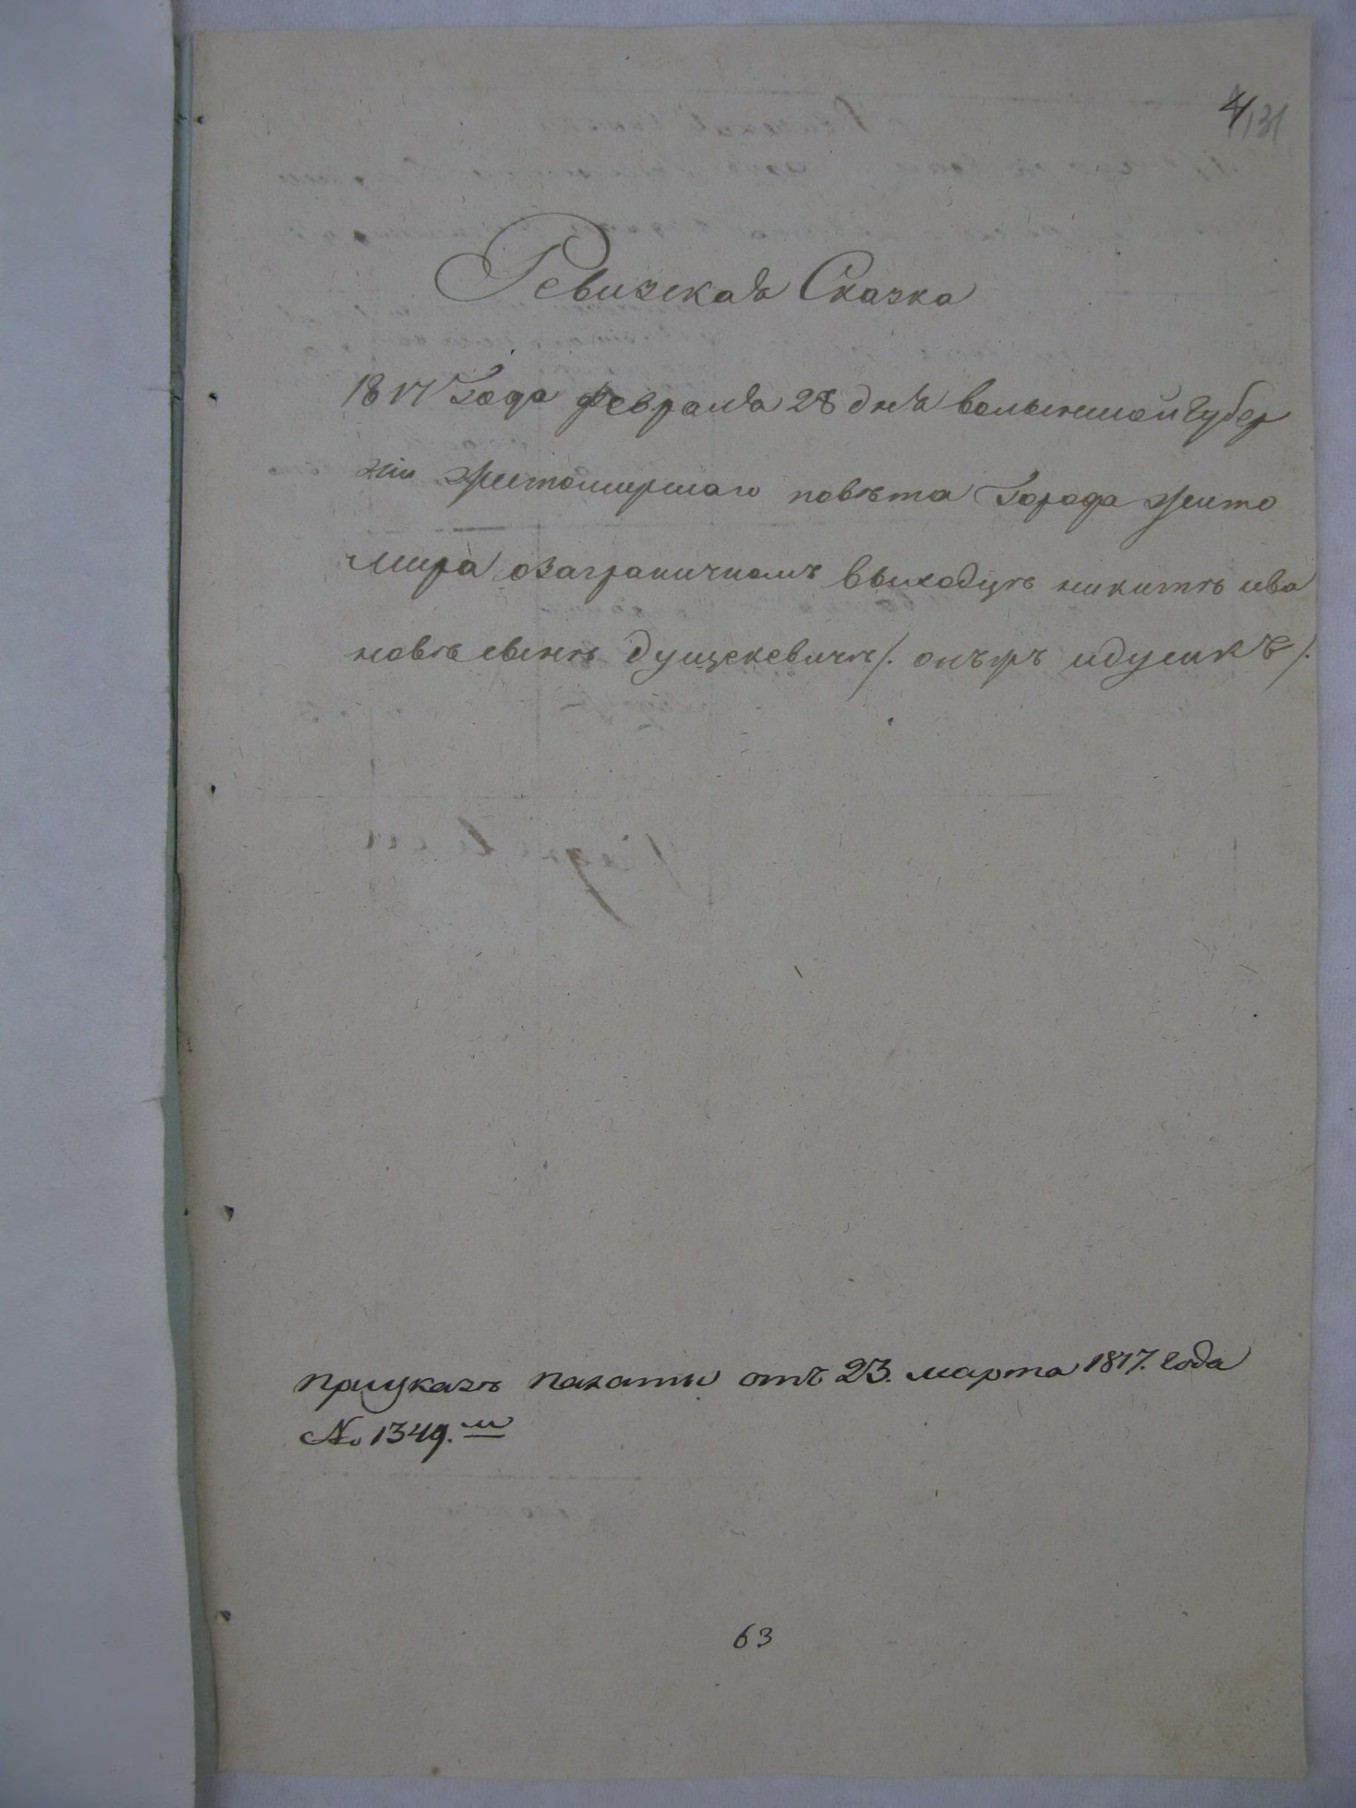 4/131
Ревизская Сказка
1817 Года февраля 28 дня волынской Губер
нии житомирскаго повѣта Города жито
мира озаграничномъ выходцѣ никитѣ ива
новѣ сынѣ
при указѣ палаты отъ 23. марта 1817. года
№ 1349.м
63